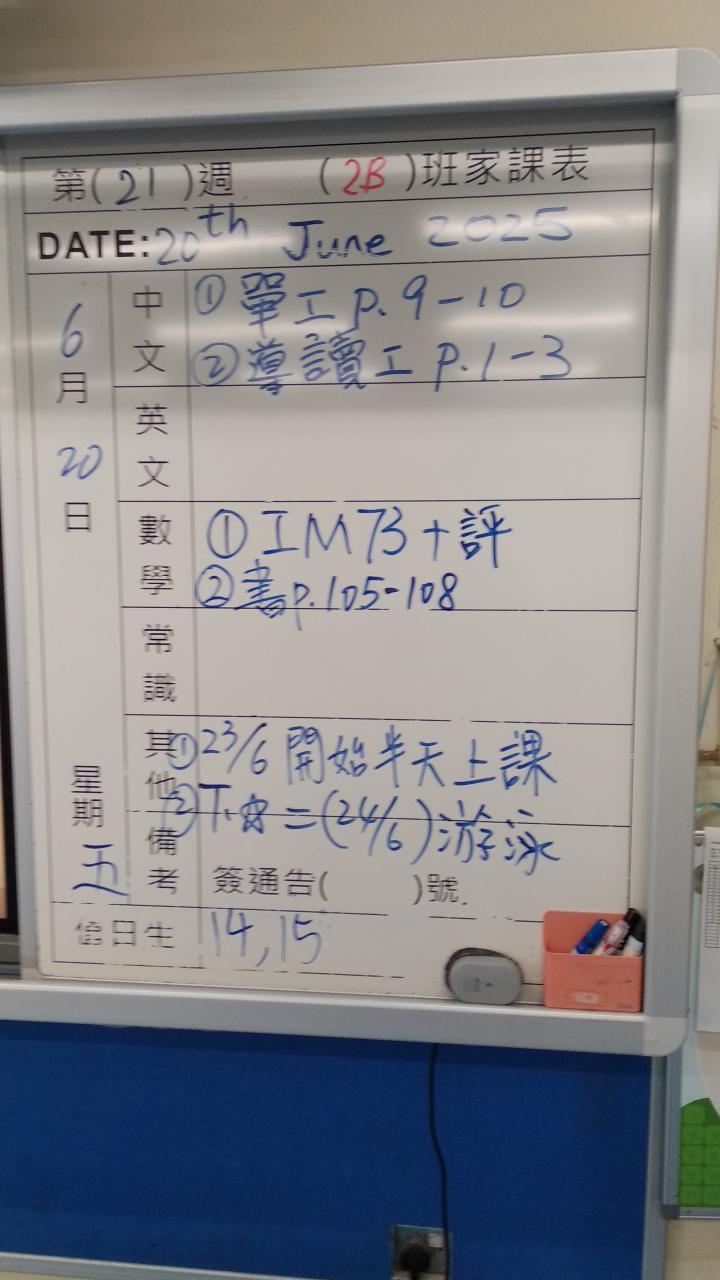 第(21)週 (2B)班家課表
DATE: 20th June 2025
6月20日
星期五
中文
① 單工 p. 9-10
② 導讀工 p. 1-3
英文
數學
① 工 M73 + 評
② 書 p. 105-108
常識
其他
① 23/6 開始半天上課
② 下 二 (24/6) 游泳
備考
簽通告( )號.
值日生
14, 15